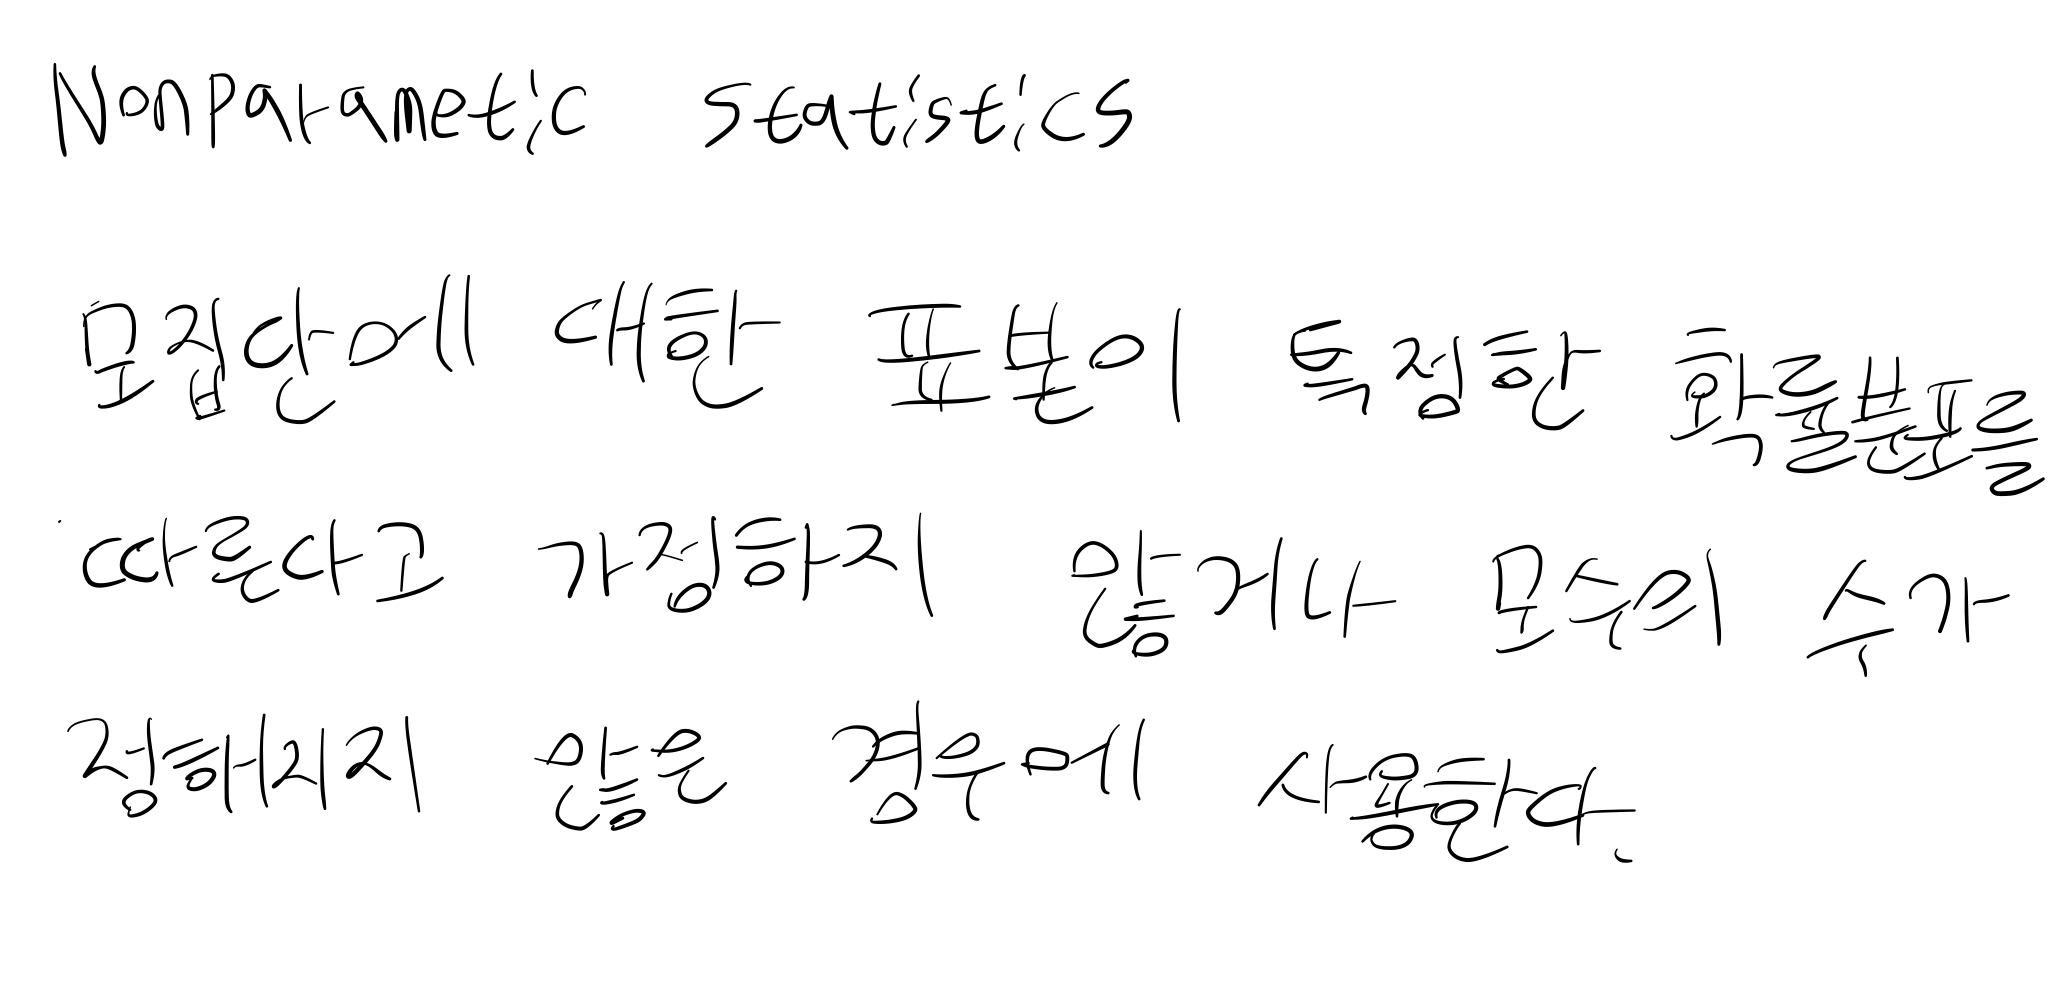 Nonparametic statistics
모집단에 대한 표본이 특정한 확률분포를
따른다고 가정하지 않거나 모수의 수가
정해지지 않은 경우에 사용한다.